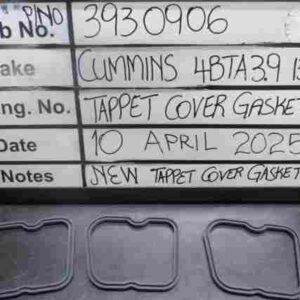 P/NO
b No. 3930906
ake CUMMINS 4BTA3.9
ng. No. TAPPET COVER GASKET
Date 10 APRIL 2025
Notes NEW TAPPET COVER GASKET